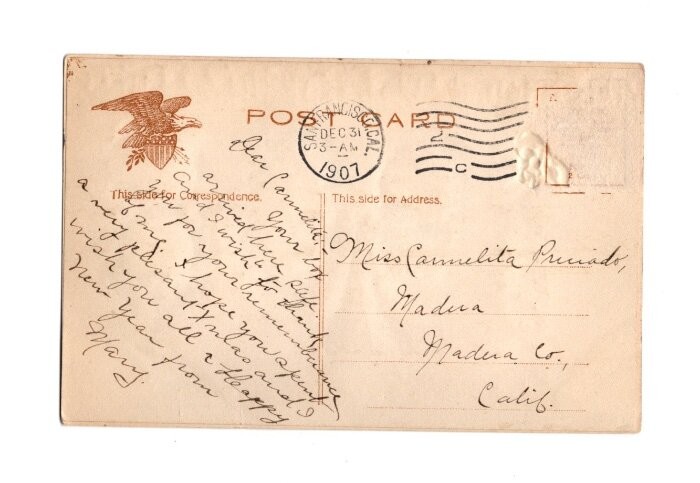 POST CARD
SAN FRANCISCO, CAL.
DEC 31
3-AM
1907
2
C
This side for Correspondence.
This side for Address.
Dear Carmelita:-
Your box
arrived here safe
and I wish to thank
you for your remembrance
of me. I hope you spent
a very pleasant Xmas and I
wish you all a Happy
New Year from
Mary.
Miss Carmelita Preciado,
Madera
Madera Co.,
Calif.